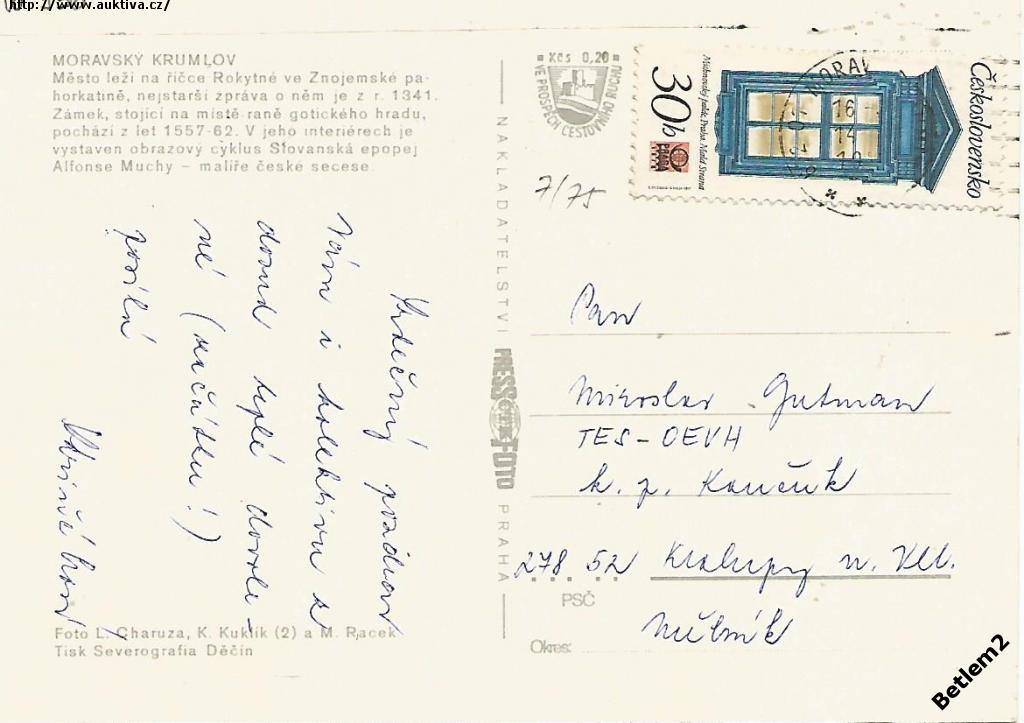 http://www.auktiva.cz/
MORAVSKÝ KRUMLOV
Město leží na říčce Rokytné ve Znojemské pa-
horkatině, nejstarší zpráva o něm je z r. 1341.
Zámek, stojící na místě raně gotického hradu,
pochází z let 1557-62. V jeho interiérech je
vystaven obrazový cyklus Slovanská epopej
Alfonse Muchy – malíře české secese.
Srdečný pozdrav
Vám i kolektivu z
dosud teplé dovole-
né (začátku!)
posílá
Foto L. Charuza, K. Kuklík (2) a M. Racek
Tisk Severografia Děčín
NAKLADATELSTVÍ PRESSFOTO PRAHA
Kčs 0,20
VE PROSPĚCH CESTOVNÍHO RUCHU
7/75
Československo
30h
Michnovský palác, Praha, Malá Strana
PRAGA
MORAV
16
14
Pan
Miroslav Gutman
TES-OEVH
k. p. Kaučuk
278 52 Kralupy n. Vlt.
PSČ
Mělník
Okres:
Betlem2